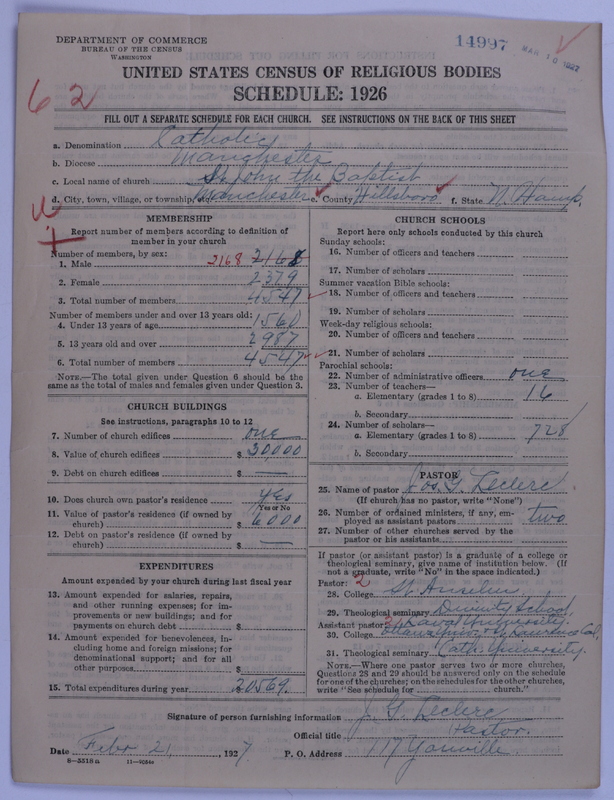 DEPARTMENT OF COMMERCE
BUREAU OF THE CENSUS
WASHINGTON
14997
MAR 10 1927
UNITED STATES CENSUS OF RELIGIOUS BODIES
SCHEDULE: 1926
62
FILL OUT A SEPARATE SCHEDULE FOR EACH CHURCH. SEE INSTRUCTIONS ON THE BACK OF THIS SHEET
a. Denomination Catholic
b. Diocese Manchester
c. Local name of church St John the Baptist
d. City, town, village, or township, etc. Manchester e. County Hillsboro f. State N. Hamp.
MEMBERSHIP
Report number of members according to definition of
member in your church
Number of members, by sex:
1. Male 2168 2168
2. Female 2379
3. Total number of members 4547
Number of members under and over 13 years old:
4. Under 13 years of age 1560
5. 13 years old and over 2987
6. Total number of members 4547
NOTE.—The total given under Question 6 should be
same as the total of males and females given under Question 3.
CHURCH BUILDINGS
See instructions, paragraphs 10 to 12
7. Number of church edifices one
8. Value of church edifices $ 30,000
9. Debt on church edifices $ —
10. Does church own pastor's residence Yes
Yes or No
11. Value of pastor's residence (if owned by
church) $ 6,000
12. Debt on pastor's residence (if owned by
church) $ —
EXPENDITURES
Amount expended by your church during last fiscal year
13. Amount expended for salaries, repairs,
and other running expenses; for im-
provements or new buildings; and for
payments on church debt $
14. Amount expended for benevolences, in-
cluding home and foreign missions; for
denominational support; and for all
other purposes $
15. Total expenditures during year 20569.
CHURCH SCHOOLS
Report here only schools conducted by this church
Sunday schools:
16. Number of officers and teachers
17. Number of scholars
Summer vacation Bible schools:
18. Number of officers and teachers
19. Number of scholars
Week-day religious schools:
20. Number of officers and teachers
21. Number of scholars
Parochial schools:
22. Number of administrative officers one
23. Number of teachers—
a. Elementary (grades 1 to 8) 16
b. Secondary
24. Number of scholars—
a. Elementary (grades 1 to 8) 728
b. Secondary
PASTOR
25. Name of pastor Jos. G. Leclerc
(If church has no pastor, write "None")
26. Number of ordained ministers, if any, em-
ployed as assistant pastors two
27. Number of other churches served by the
pastor or his assistants
If pastor (or assistant pastor) is a graduate of a college or
theological seminary, give name of institution below. (If
not a graduate, write "No" in the space indicated.)
Pastor: 2
28. College St Anselm
29. Theological seminary Divinity School
Assistant pastor: Laval University.
30. College
31. Theological seminary Cath. University.
NOTE.—Where one pastor serves two or more churches,
Questions 28 and 29 should be answered only on the schedule
for one of the churches; on the schedules for the other churches,
write "See schedule for church."
Signature of person furnishing information J. G. Leclerc
Official title Pastor.
Date Febr 21, 1927 P. O. Address 117
8—5518a 11—9084